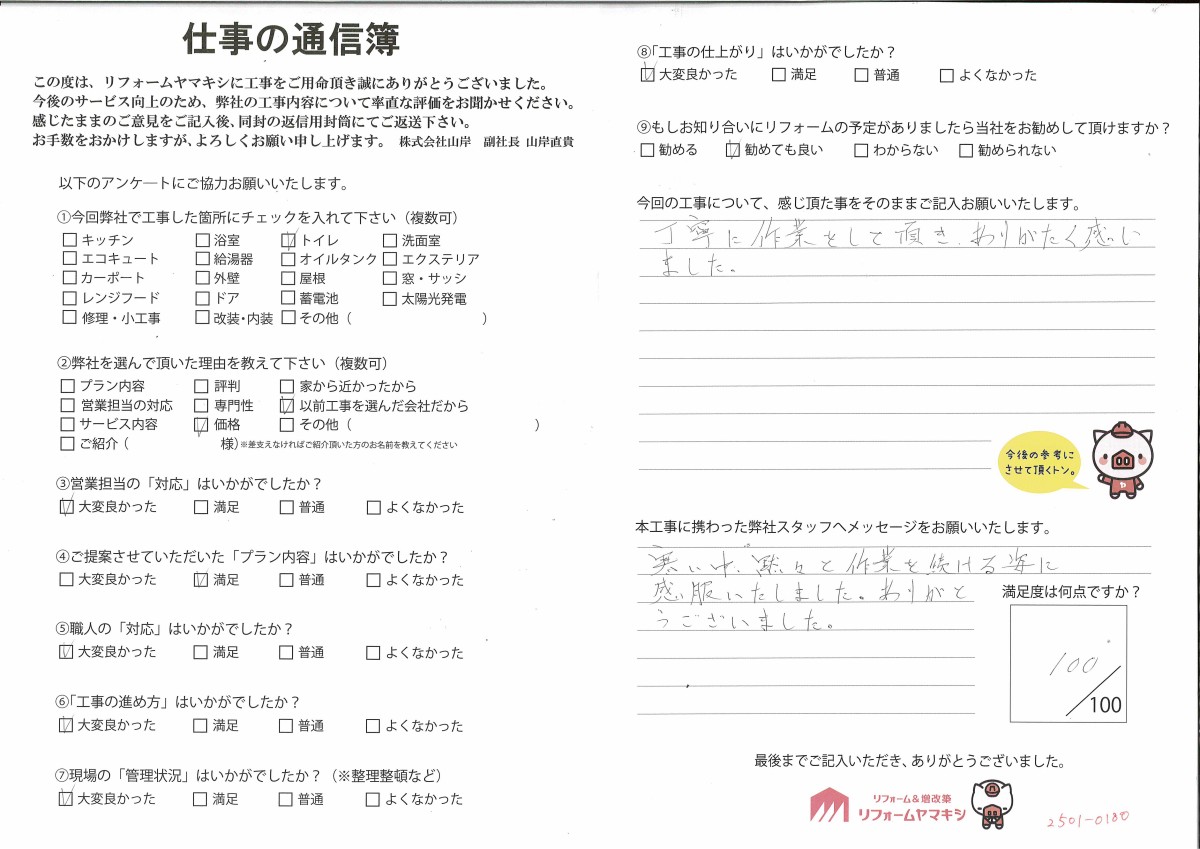 仕事の通信簿
この度は、リフォームヤマキシに工事をご用命頂き誠にありがとうございました。
今後のサービス向上のため、弊社の工事内容について率直な評価をお聞かせください。
感じたままのご意見をご記入後、同封の返信用封筒にてご返送下さい。
お手数をおかけしますが、よろしくお願い申し上げます。 株式会社山岸 副社長 山岸直貴
以下のアンケートにご協力お願いいたします。
①今回弊社で工事した箇所にチェックを入れて下さい（複数可）
□キッチン □浴室 ☑トイレ □洗面室
□エコキュート □給湯器 □オイルタンク □エクステリア
□カーポート □外壁 □屋根 □窓・サッシ
□レンジフード □ドア □蓄電池 □太陽光発電
□修理・小工事 □改装・内装 □その他（ ）
②弊社を選んで頂いた理由を教えて下さい（複数可）
□プラン内容 □評判 □家から近かったから
□営業担当の対応 □専門性 ☑以前工事を選んだ会社だから
□サービス内容 ☑価格 □その他（ ）
□ご紹介（ 様）※差支えなければご紹介頂いた方のお名前を教えてください
③営業担当の「対応」はいかがでしたか？
☑大変良かった □満足 □普通 □よくなかった
④ご提案させていただいた「プラン内容」はいかがでしたか？
□大変良かった ☑満足 □普通 □よくなかった
⑤職人の「対応」はいかがでしたか？
☑大変良かった □満足 □普通 □よくなかった
⑥「工事の進め方」はいかがでしたか？
☑大変良かった □満足 □普通 □よくなかった
⑦現場の「管理状況」はいかがでしたか？（※整理整頓など）
☑大変良かった □満足 □普通 □よくなかった
⑧「工事の仕上がり」はいかがでしたか？
☑大変良かった □満足 □普通 □よくなかった
⑨もしお知り合いにリフォームの予定がありましたら当社をお勧めして頂けますか？
□勧める ☑勧めても良い □わからない □勧められない
今回の工事について、感じ頂た事をそのままご記入お願いいたします。
丁寧に作業をして頂き、ありがたく感じ
ました。
今後の参考に
させて頂くトン。
本工事に携わった弊社スタッフへメッセージをお願いいたします。
寒い中、黙々と作業を続ける姿に
感服いたしました。ありがと
うございました。
満足度は何点ですか？
100
/100
最後までご記入いただき、ありがとうございました。
リフォーム＆増改築
リフォームヤマキシ
2501-0180